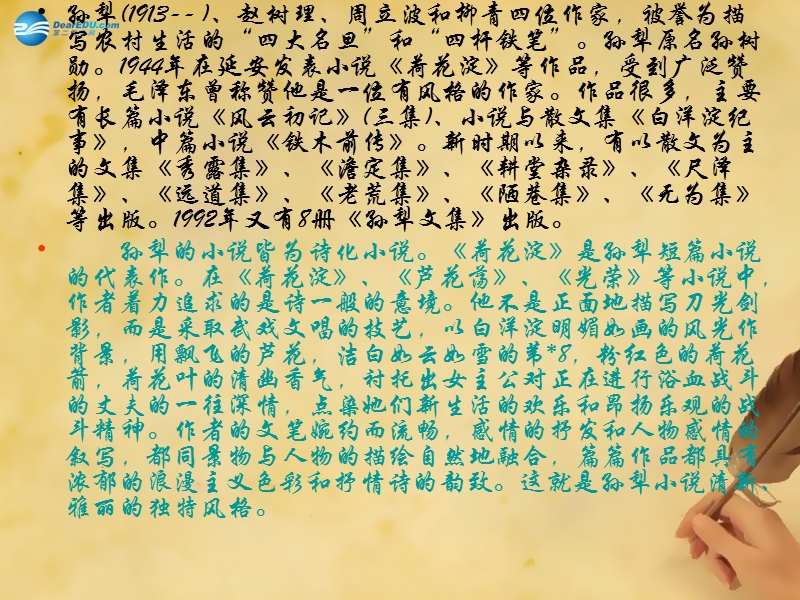 DearEDU.com
第二教育网
孙犁(1913--)、赵树理、周立波和柳青四位作家，被誉为描
写农村生活的“四大名旦”和“四杆铁笔”。孙犁原名孙树
勋。1944年在延安发表小说《荷花淀》等作品，受到广泛赞
扬，毛泽东曾称赞他是一位有风格的作家。作品很多，主要
有长篇小说《风云初记》(三集)、小说与散文集《白洋淀纪
事》，中篇小说《铁木前传》。新时期以来，有以散文为主
的文集《秀露集》、《澹定集》、《耕堂杂录》、《尺泽
集》、《远道集》、《老荒集》、《陋巷集》、《无为集》
等出版。1992年又有8册《孙犁文集》出版。
孙犁的小说皆为诗化小说。《荷花淀》是孙犁短篇小说
的代表作。在《荷花淀》、《芦花荡》、《光荣》等小说中，
作者着力追求的是诗一般的意境。他不是正面地描写刀光剑
影，而是采取武戏文唱的技艺，以白洋淀明媚如画的风光作
背景，用飘飞的芦花，洁白如云如雪的苇*8，粉红色的荷花
箭，荷花叶的清幽香气，衬托出女主公对正在进行浴血战斗
的丈夫的一往深情，点染她们新生活的欢乐和昂扬乐观的战
斗精神。作者的文笔婉约而流畅，感情的抒发和人物感情的
叙写，都同景物与人物的描绘自然地融合，篇篇作品都具有
浓郁的浪漫主义色彩和抒情诗的韵致。这就是孙犁小说清新、
雅丽的独特风格。